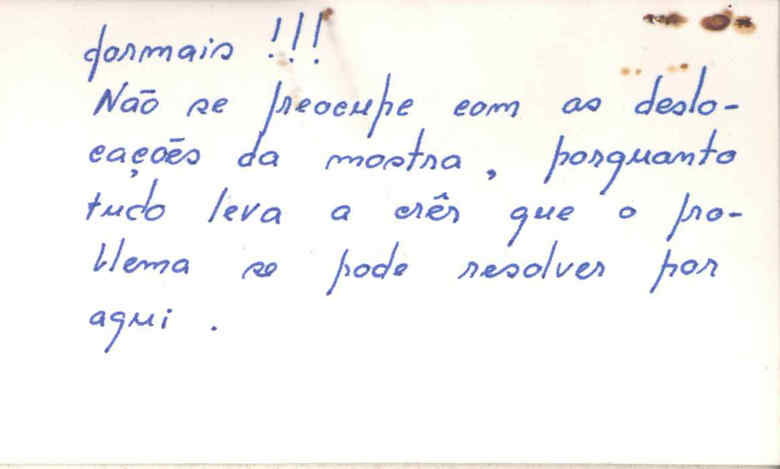 formais !!!
Não se preocupe com as deslo-
cações da mostra, porquanto
tudo leva a crêr que o pro-
blema se pode resolver por
aqui.